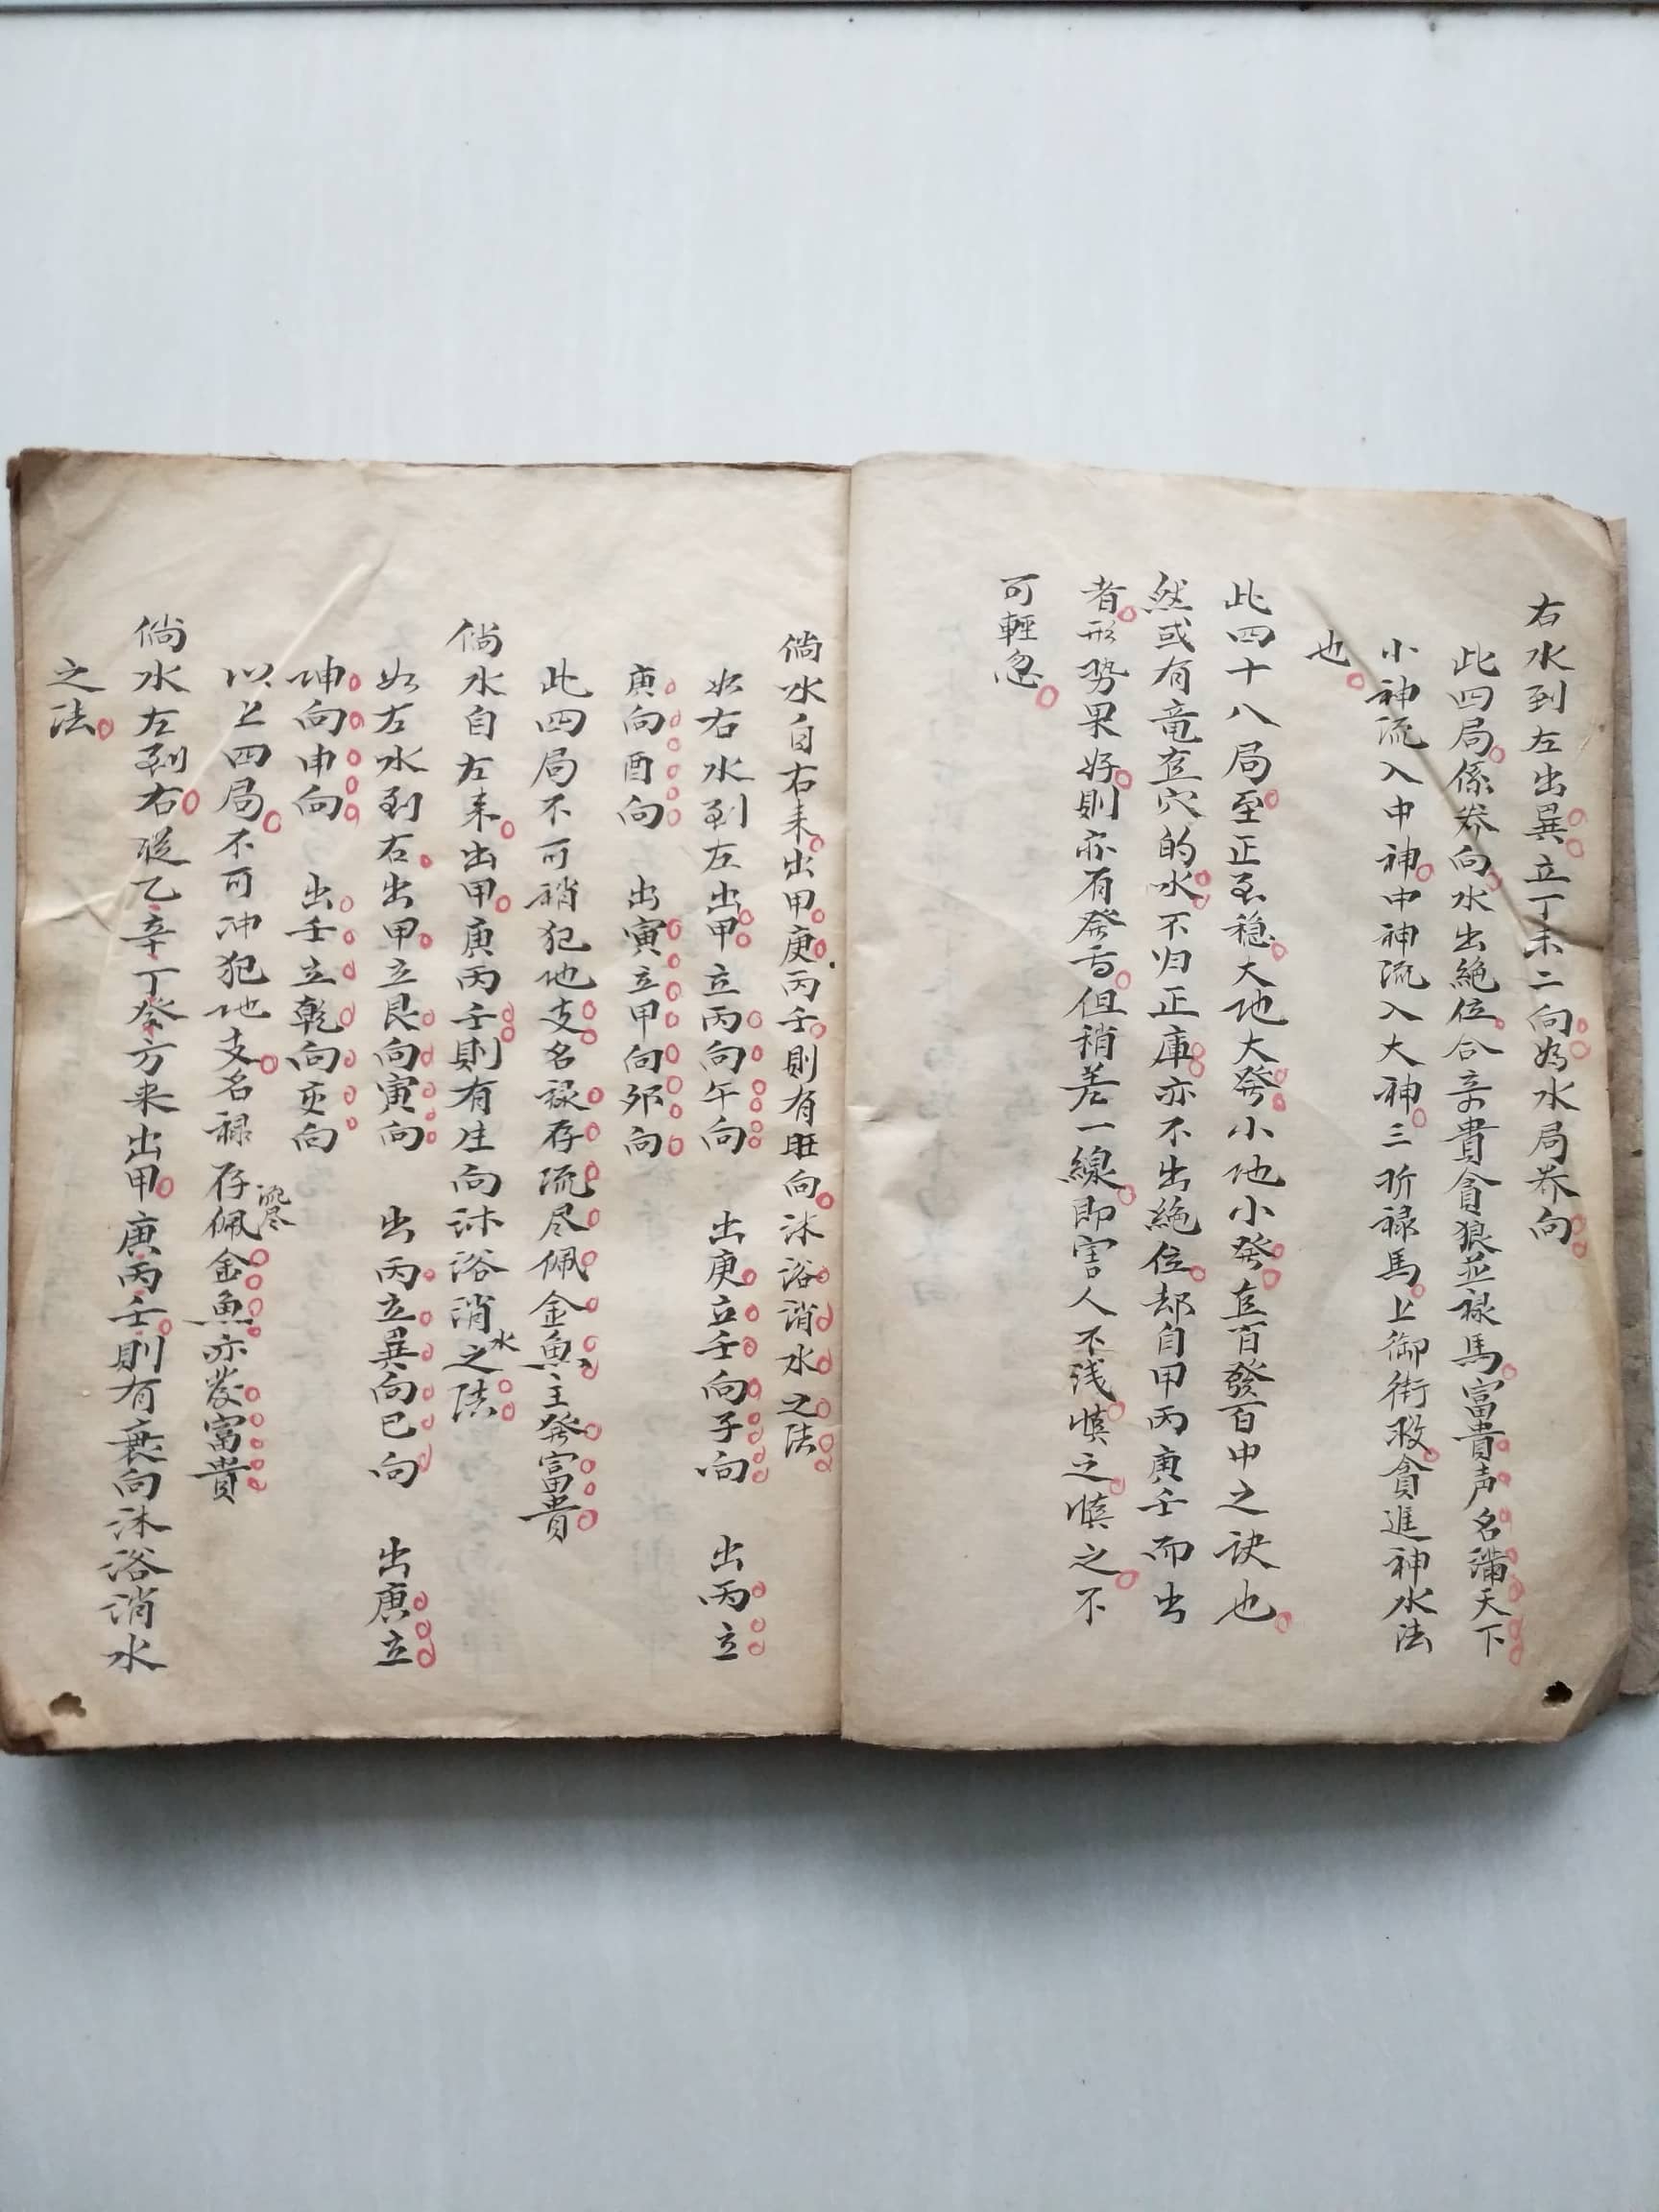 右水到左出巽立丁未二向為水局养向
此四局係养向水出絶位合辛貴貪狼並禄馬富貴声名满天下
小神流入中神中神流入大神三折禄馬上御街救貪進神水法
也
此四十八局至正至穏大地大発小地小発真百發百中之訣也
然或有竜真穴的水不归正庫亦不出絶位却自甲丙庚壬而出
者形势果好則亦有発者但稍差一線即害人不浅慎之慎之不
可輕忽
倘水自右来出甲庚丙壬則有旺向沐浴消水之法
如右水到左出甲立丙向午向 出庚立壬向子向 出丙立
庚向酉向 出寅立甲向卯向
此四局不可稍犯地支名禄存流尽佩金魚主発富貴
倘水自左来出甲庚丙壬則有生向沐浴消水之法
如左水到右出甲立艮向寅向 出丙立巽向巳向 出庚立
坤向申向 出壬立乾向亥向
以上四局不可冲犯地支名禄存流尽佩金魚亦發富貴
倘水左到右從乙辛丁癸方来出甲庚丙壬則有衰向沐浴消水
之法